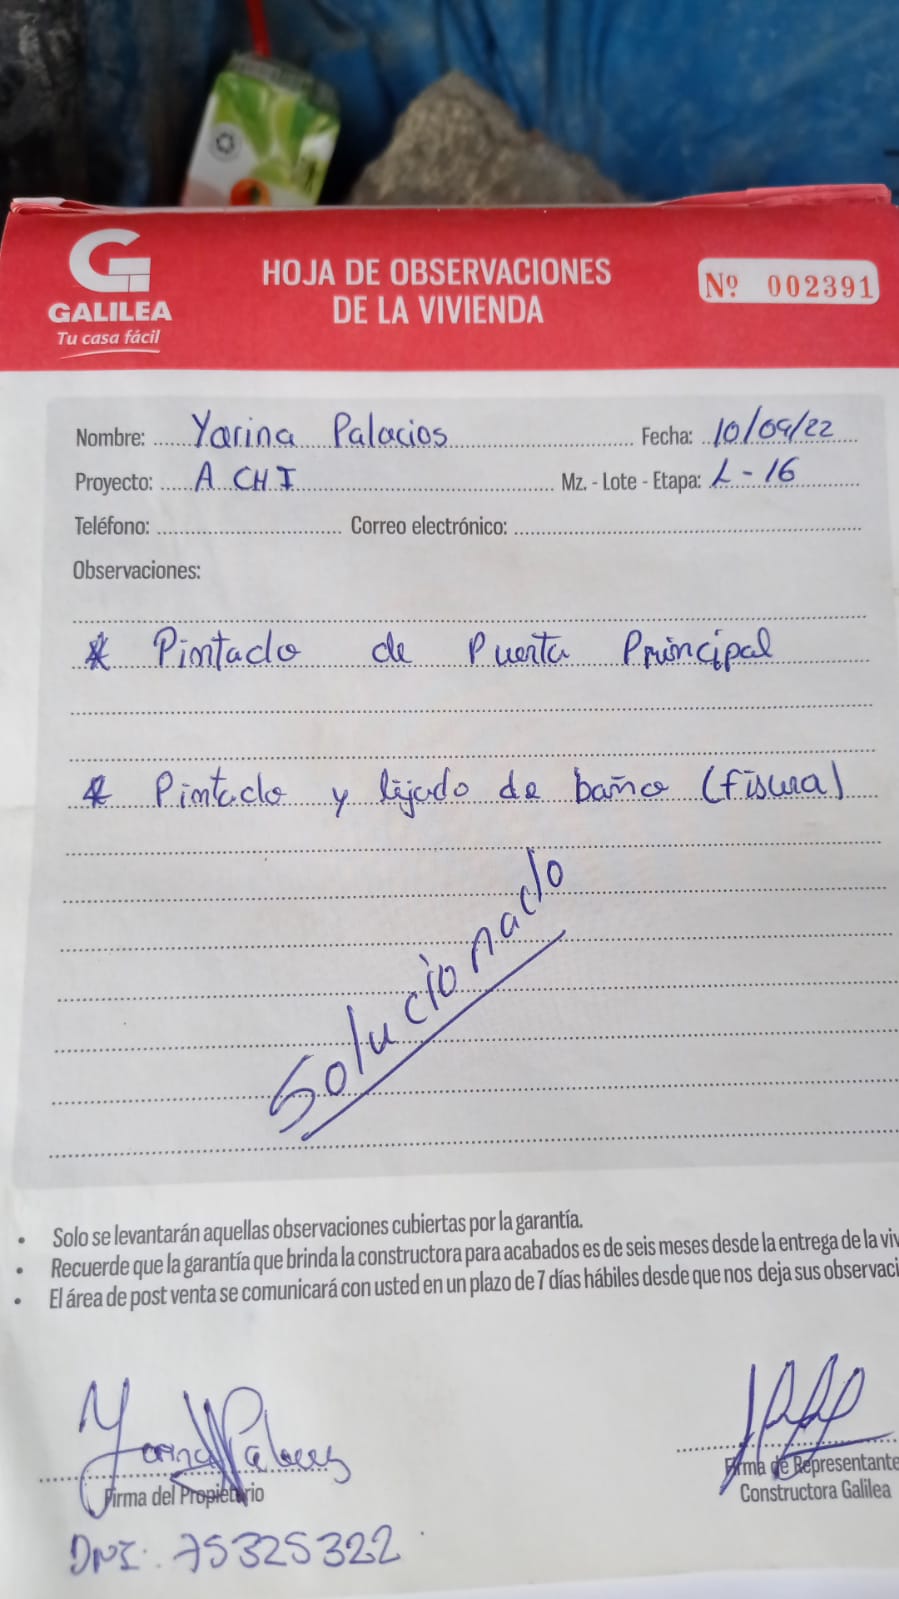 GALILEA
Tu casa fácil
HOJA DE OBSERVACIONES
DE LA VIVIENDA
Nº 002391
Nombre: Yarina Palacios Fecha: 10/09/22
Proyecto: A CHI Mz. - Lote - Etapa: L - 16
Teléfono: Correo electrónico:
Observaciones:
* Pintado de Puerta Principal
* Pintado y lijado de baño (fisura)
Solucionado
• Solo se levantarán aquellas observaciones cubiertas por la garantía.
• Recuerde que la garantía que brinda la constructora para acabados es de seis meses desde la entrega de la viv
• El área de post venta se comunicará con usted en un plazo de 7 días hábiles desde que nos deja sus observaci
Yarina Palacios
Firma del Propietario
Firma de Representante
Constructora Galilea
DNI: 75325322